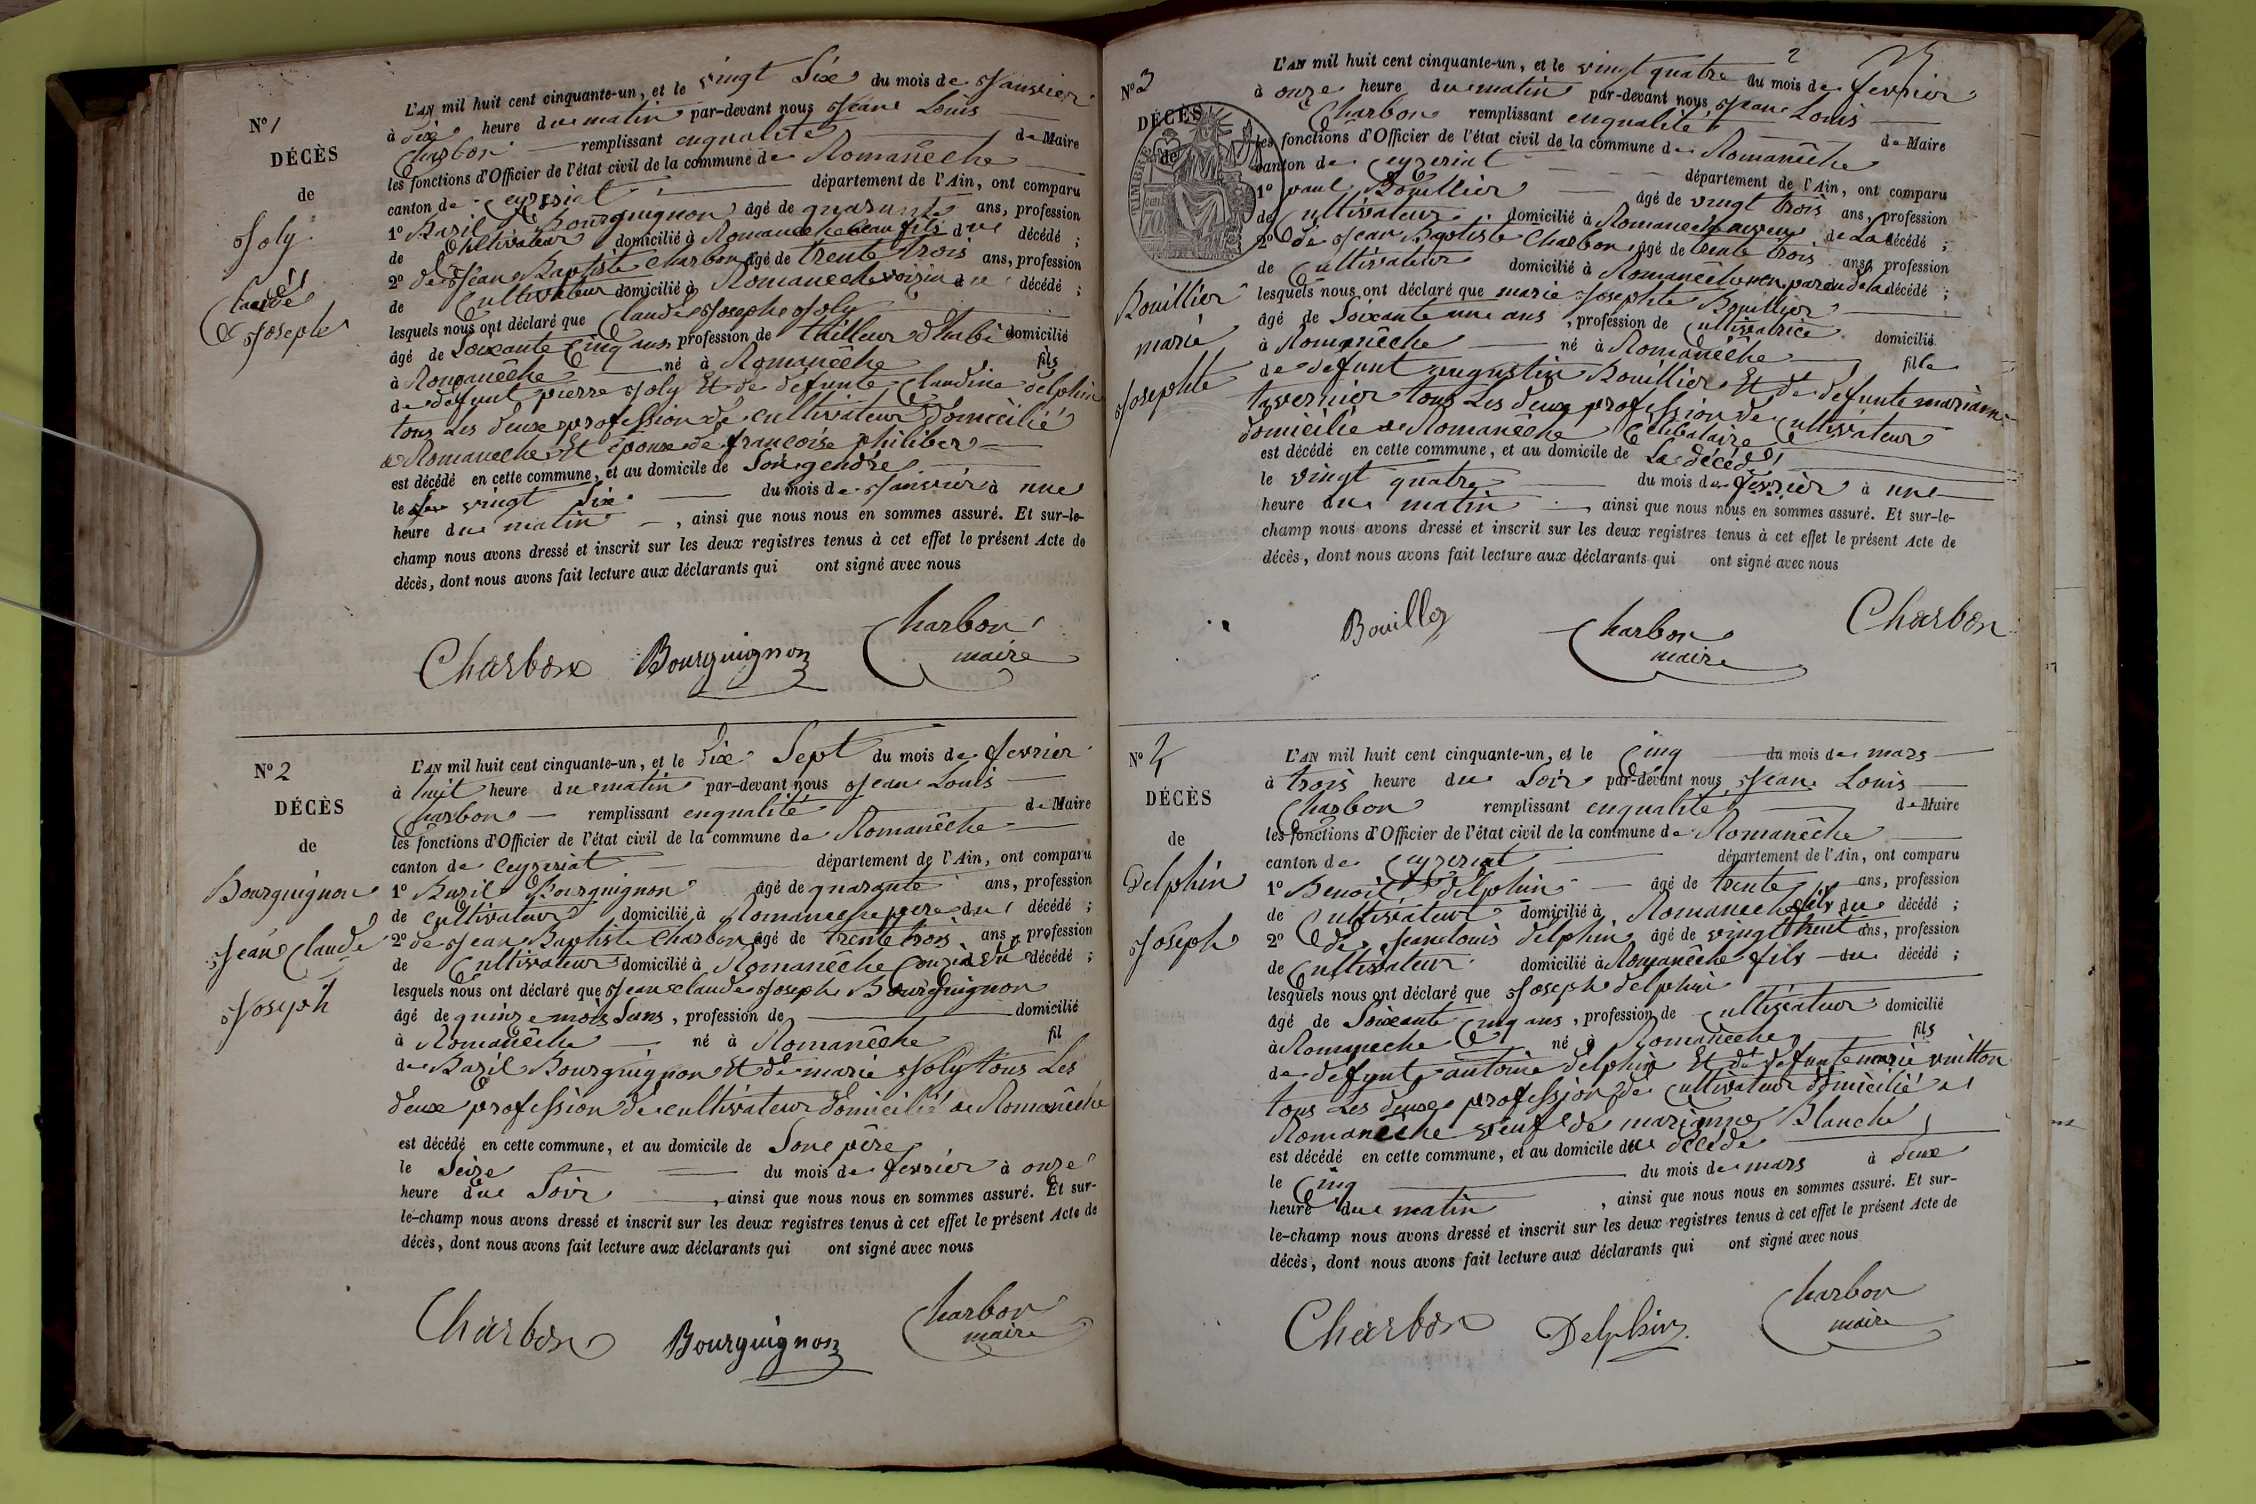 N° 1
DÉCÈS
de
Joly
Claude
Joseph
L'AN mil huit cent cinquante-un, et le vingt Six du mois de Janvier
à dix heure du matin par-devant nous Jean Louis
Charbon remplissant enqualité de Maire
les fonctions d'Officier de l'état civil de la commune de Romanêche
canton de Ceyzeriat département de l'Ain, ont comparu
1° Bazil Bourguignon âgé de quarante ans, profession
de Cultivateur domicilié à Romaneche beau fils du décédé ;
2° de Jean Baptiste Charbon âgé de trente trois ans, profession
de Cultivateur domicilié à Romaneche voisin du décédé ;
lesquels nous ont déclaré que Claude Joseph Joly
âgé de Soixante Cinq ans profession de tailleur d'habi domicilié
à Romanêche né à Romanêche fils
de défunt pierre Joly Et de defunte Claudine delphin
tous Les deux profession de cultivateur Domicilié
a Romaneche Et Epoux de françoise philiber
est décédé en cette commune, et au domicile de Son gendre
le vingt Six du mois de Janvier à une
heure du matin , ainsi que nous nous en sommes assuré. Et sur-le-
champ nous avons dressé et inscrit sur les deux registres tenus à cet effet le présent Acte de
décès, dont nous avons fait lecture aux déclarants qui ont signé avec nous
Charbon Bourguignon Charbon
maire
N° 2
DÉCÈS
de
Bourguignon
Jean Claude
Joseph
L'AN mil huit cent cinquante-un, et le dix Sept du mois de fevrier
à huit heure du matin par-devant nous Jean Louis
Charbon remplissant enqualité de Maire
les fonctions d'Officier de l'état civil de la commune de Romanêche
canton de Ceyzeriat département de l'Ain, ont comparu
1° Bazil Bourguignon âgé de quarante ans, profession
de cultivateur domicilié à Romaneche pere du décédé ;
2° de Jean Baptiste Charbon âgé de trente trois ans, profession
de Cultivateur domicilié à Romanêche Couzin du décédé ;
lesquels nous ont déclaré que Jean claude Joseph Bourguignon
âgé de quinze mois Sans , profession de domicilié
à Romanêche né à Romanêche fil
de Bazil Bourguignon Et de marie Joly tous Les
deux profession de cultivateur domicilié a Romanêche
est décédé en cette commune, et au domicile de Son père
le Seize du mois de fevrier à onze
heure du Soir , ainsi que nous nous en sommes assuré. Et sur-
le-champ nous avons dressé et inscrit sur les deux registres tenus à cet effet le présent Acte de
décès, dont nous avons fait lecture aux déclarants qui ont signé avec nous
Charbon Bourguignon Charbon
maire
2
N° 3
DÉCÈS
de
Bouillier
marie
Josephte
L'AN mil huit cent cinquante-un, et le vingt quatre du mois de fevrier
à onze heure du matin par-devant nous Jean Louis
Charbon remplissant enqualité de Maire
les fonctions d'Officier de l'état civil de la commune de Romanêche
canton de Ceyzeriat département de l'Ain, ont comparu
1° paul Bouillier âgé de vingt trois ans, profession
de Cultivateur domicilié à Romaneche neveu de La décédé ;
2° de Jean Baptiste Charbon âgé de trente trois ans, profession
de Cultivateur domicilié à Romanêche non paran de la décédé ;
lesquels nous ont déclaré que marie Josephte Bouillier
âgé de Soixante une ans , profession de Cultivatrice domicilié
à Romanêche né à Romanêche fille
de defunt augustin Bouillier Et de defunte mariane
tavernier tous Les deux profession de Cultivateur
domicilié a Romanêche Celibataire
est décédé en cette commune, et au domicile de La décédé
le vingt quatre du mois de fevrier à une
heure du matin , ainsi que nous nous en sommes assuré. Et sur-le-
champ nous avons dressé et inscrit sur les deux registres tenus à cet effet le présent Acte de
décès, dont nous avons fait lecture aux déclarants qui ont signé avec nous
Bouiller Charbon Charbon
maire
N° 4
DÉCÈS
de
Delphin
Joseph
L'AN mil huit cent cinquante-un, et le Cinq du mois de mars
à trois heure du Soir par-devant nous Jean Louis
Charbon remplissant enqualité de Maire
les fonctions d'Officier de l'état civil de la commune de Romanêche
canton de Ceyzeriat département de l'Ain, ont comparu
1° Benoit Delphin âgé de trente ans, profession
de Cultivateur domicilié à Romaneche fils du décédé ;
2° de Jean Louis delphin âgé de vingt huit ans, profession
de Cultivateur domicilié à Romanêche fils du décédé ;
lesquels nous ont déclaré que Joseph delphin
âgé de Soixante Cinq ans , profession de Cultivateur domicilié
à Romaneche né à Romaneche fils
de defunt antoine delphin Et de defunte marie vuitton
tous Les deux profession de Cultivateur domicilié a
Romanêche veuf de marianne Blanche
est décédé en cette commune, et au domicile du décédé
le Cinq du mois de mars à deux
heure du matin , ainsi que nous nous en sommes assuré. Et sur-
le-champ nous avons dressé et inscrit sur les deux registres tenus à cet effet le présent Acte de
décès, dont nous avons fait lecture aux déclarants qui ont signé avec nous
Charbon Delphin Charbon
maire